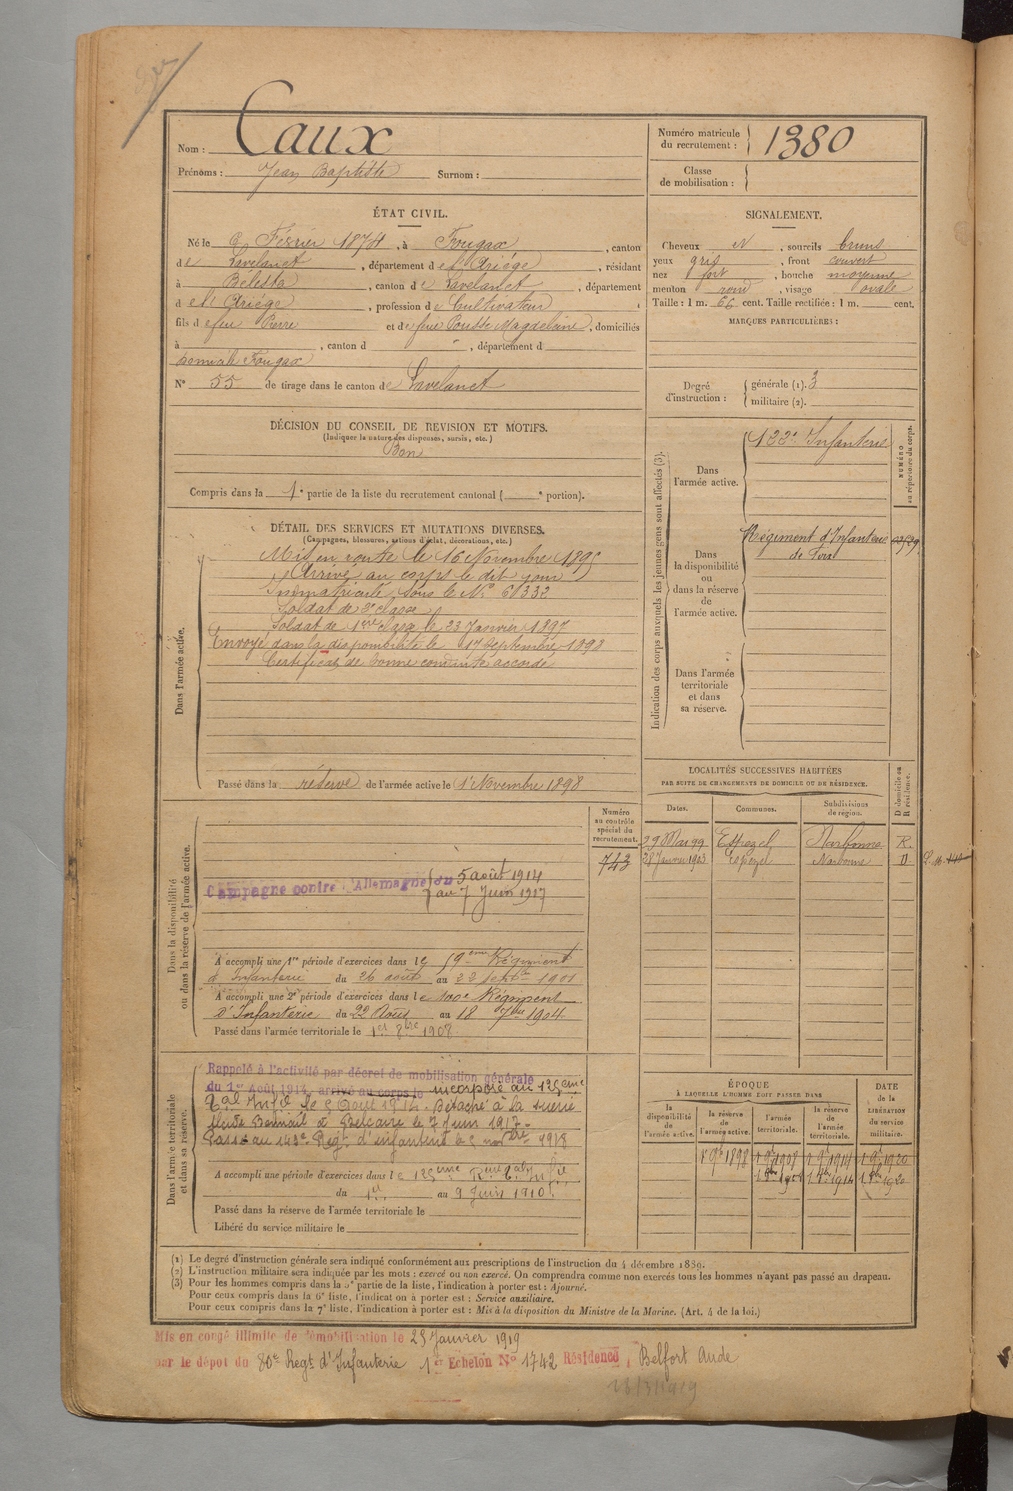 Nom : Caux
Prénoms : Jean Baptiste Surnom :
Numéro matricule du recrutement : 1380
Classe de mobilisation :
ÉTAT CIVIL.
Né le Février 1874, à Fougax, canton
de Lavelanet, département de l'Ariège, résidant
à Bélesta, canton de Lavelanet, département
de l'Ariège, profession de Cultivateur
fils de feu Pierre et de feue Pousse Magdelaine, domiciliés
à , canton d , département d
domicilié Fougax
N° 55 de tirage dans le canton de Lavelanet
SIGNALEMENT.
Cheveux N, sourcils bruns
yeux gris, front couvert
nez fort, bouche moyenne
menton rond, visage ovale
Taille : 1 m. 66 cent. Taille rectifiée : 1 m. cent.
MARQUES PARTICULIÈRES :
Degré d'instruction : générale (1). 3
militaire (2).
DÉCISION DU CONSEIL DE REVISION ET MOTIFS.
(Indiquer la nature des dispenses, sursis, etc.)
Bon
Compris dans la 1e partie de la liste du recrutement cantonal ( e portion).
DÉTAIL DES SERVICES ET MUTATIONS DIVERSES.
(Campagnes, blessures, actions d'éclat, décorations, etc.)
Dans l'armée active.
Mis en route le 16 Novembre 1895
Arrivé au corps le dit jour
Immatriculé sous le N°
Soldat de 2e classe
Soldat de 1ère classe le 23 Janvier 1897
Envoyé dans la disponibilité le 17 Septembre 1898
Certificat de bonne conduite accordé
Passé dans la réserve de l'armée active le 1er Novembre 1898
Indication des corps auxquels les jeunes gens sont affectés (3).
NUMÉRO au répertoire du corps.
Dans l'armée active.
122e Infanterie
Dans la disponibilité ou dans la réserve de l'armée active.
Régiment d'Infanterie
de Foix
Dans l'armée territoriale et dans sa réserve.
LOCALITÉS SUCCESSIVES HABITÉES
PAR SUITE DE CHANGEMENTS DE DOMICILE OU DE RÉSIDENCE.
Dates. Communes. Subdivisions de région. D domicile ou R résidence.
29 Mai 99 Espezel Narbonne R.
28 Janvier 1903 Espezel Narbonne D
Dans la disponibilité ou dans la réserve de l'armée active.
Numéro au contrôle spécial du recrutement.
743
Campagne contre l'Allemagne du 5 août 1914
au 7 Juin 1917
A accompli une 1re période d'exercices dans le 19eme Régiment
d'Infanterie du 26 août au 22 Septbre 1901
A accompli une 2e période d'exercices dans le 100e Régiment
D'Infanterie du 22 Août au 18 7bre 1904
Passé dans l'armée territoriale le 1er 8bre 1908
Dans l'armée territoriale et dans sa réserve.
Rappelé à l'activité par décret de mobilisation générale
du 1er Août 1914, arrivé au corps le incorporé au 125eme
Ral Infie le 5 Août 1914. Détaché à la
le 7 Juin 1917.
Passé au 143e Regt d'infanterie le 5 novbre 1918
A accompli une période d'exercices dans le 125eme
du 1er au 9 Juin 1910.
Passé dans la réserve de l'armée territoriale le
Libéré du service militaire le
ÉPOQUE
À LAQUELLE L'HOMME DOIT PASSER DANS
la disponibilité de l'armée active. la réserve de l'armée active. l'armée territoriale. la réserve de l'armée territoriale. DATE de la LIBÉRATION DU service militaire.
1 9bre 1898 1 9bre 1908 1 9bre 1914 1 9bre 1920
1 8bre 1908 1 8bre 1914 1 8bre 1920
(1) Le degré d'instruction générale sera indiqué conformément aux prescriptions de l'instruction du 4 décembre 1889.
(2) L'instruction militaire sera indiquée par les mots : exercé ou non exercé. On comprendra comme non exercés tous les hommes n'ayant pas passé au drapeau.
(3) Pour les hommes compris dans la 5e partie de la liste, l'indication à porter est : Ajourné.
Pour ceux compris dans la 6e liste, l'indication à porter est : Service auxiliaire.
Pour ceux compris dans la 7e liste, l'indication à porter est : Mis à la disposition du Ministre de la Marine. (Art. 4 de la loi.)
Mis en congé illimité de démobilisation le 25 Janvier 1919
par le dépôt du 80e Regt d'Infanterie 1er Echelon N° 1742 Résidence Belfort Aude
18/3/1919